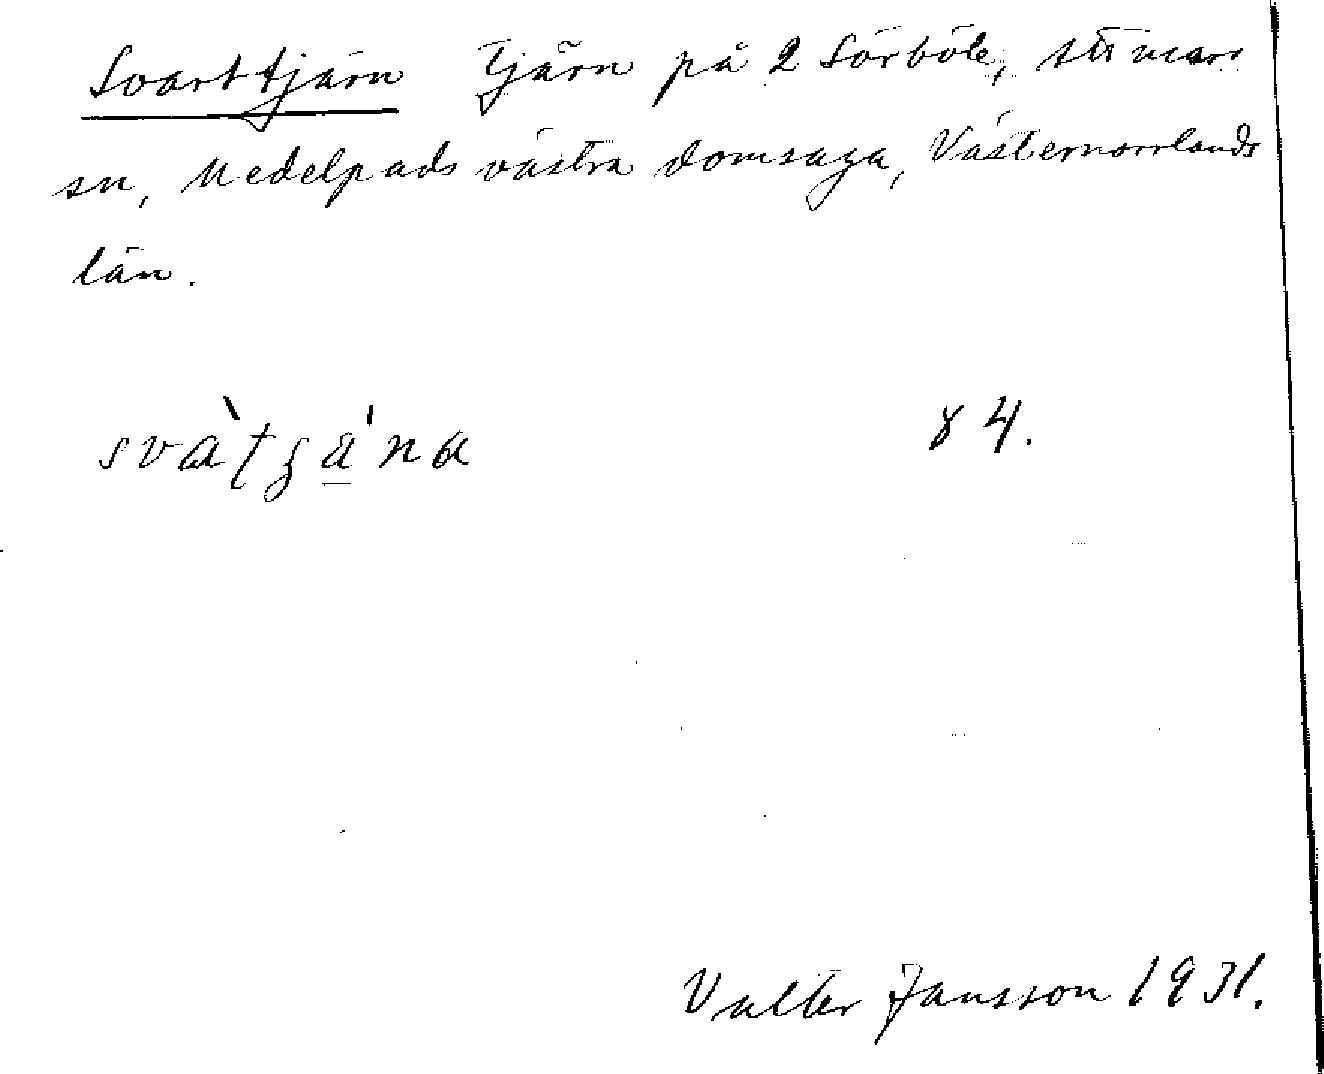 Svarttjärn Tjärn på 2 Sörböle, Attmars
sn, Medelpads västra domsaga, Västernorrlands
län.
svàtʂä'na 84.
Valter Jansson 1931.